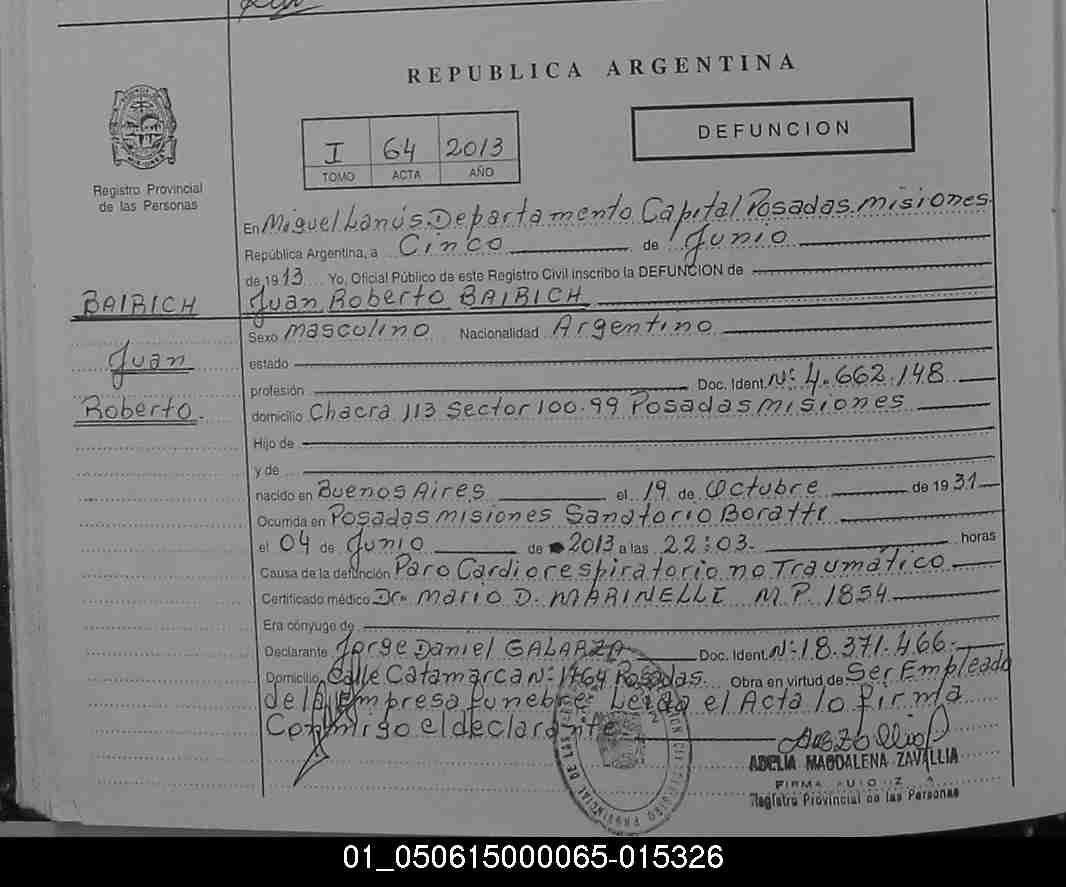 REPUBLICA ARGENTINA
DEFUNCION
I 64 2013
TOMO ACTA AÑO
Registro Provincial
de las Personas
En Miguel Lanús. Departamento Capital Posadas. misiones
República Argentina, a Cinco de Junio
de 1913 Yo, Oficial Público de este Registro Civil inscribo la DEFUNCION de
BAIBICH
Juan Roberto BAIBICH
Sexo masculino Nacionalidad Argentino
Juan
estado
profesión Doc. Ident. Nº: 4.662.148
Roberto.
domicilio Chacra 113 Sector 100.99 Posadas misiones
Hijo de
y de
nacido en Buenos Aires el 19 de Octubre de 1931
Ocurrida en Posadas misiones Sanatorio Boratti
el 04 de Junio de 2013 a las 22:03. horas
Causa de la defunción Paro Cardiorespiratorio no Traumático
Certificado médico Dr. Mario D. MARINELLI M.P. 1854
Era cónyuge de
Declarante Jorge Daniel GALARZA Doc. Ident. Nº: 18.371.466.
Domicilio Calle Catamarca Nº 1764 Posadas. Obra en virtud de Ser Empleado
de la Empresa funebre Leida el Acta lo firma
Conmigo el declarante
ADELIA MAGDALENA ZAVALLIA
FIRMA
Registro Provincial de las Personas
01_050615000065-015326